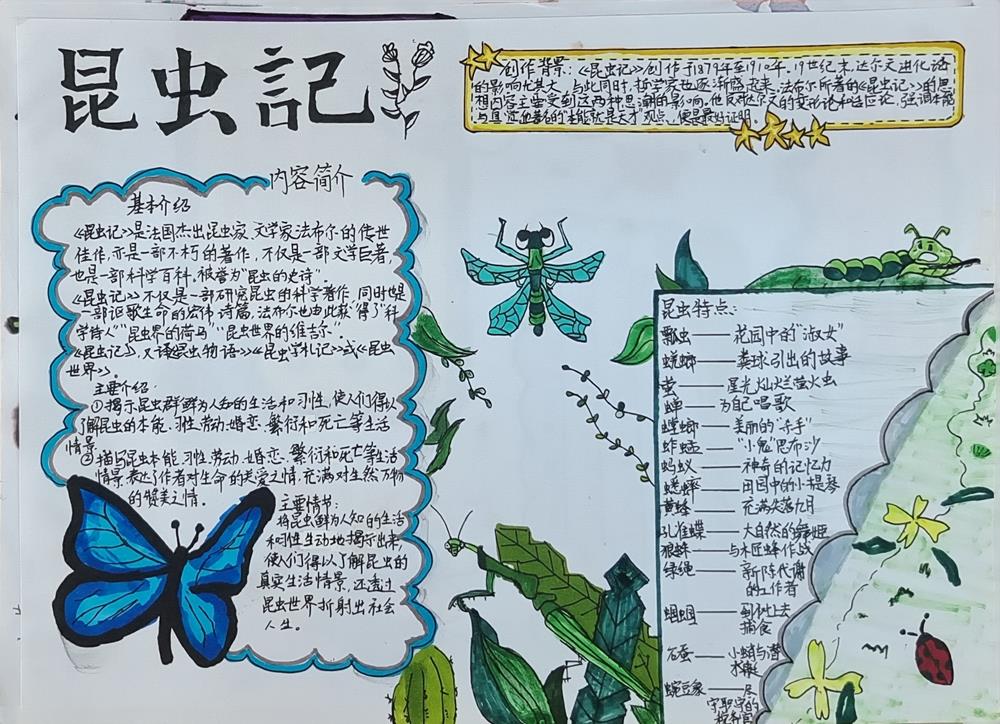 昆虫記
创作背景:《昆虫记》创作于1879年至1910年,19世纪末,达尔文进化论
的影响尤其大,与此同时,哲学家也逐渐盛起来,法布尔所著的《昆虫记》的思
想内容主要受到这两种思潮的影响,他反对达尔文的变形论和适应论,强调本能
与直觉他著名的"本能就是天才"观点,便是最好证明。
内容简介
基本介绍
《昆虫记》是法国杰出昆虫家、文学家法布尔的传世
佳作,亦是一部不朽的著作,不仅是一部文学巨著,
也是一部科学百科。被誉为"昆虫的史诗"。
《昆虫记》不仅是一部研究昆虫的科学著作,同时也是
一部讴歌生命的宏伟诗篇,法布尔也由此获得了"科
学诗人""昆虫界的荷马""昆虫世界的维吉尔"。
《昆虫记》,又译《昆虫物语》《昆虫学札记》或《昆虫
世界》。
主要介绍:
①揭示昆虫群鲜为人知的生活和习性,使人们得以
了解昆虫的本能、习性、劳动、婚恋、繁衍和死亡等生活
情景
②描写昆虫本能、习性、劳动、婚恋、繁衍和死亡等生活
情景表达了作者对生命的关爱之情,充满对生然万物
的赞美之情。
主要情节:
将昆虫鲜为人知的生活
和习性生动地揭示出来,
使人们得以了解昆虫的
真实生活情景,还透过
昆虫世界折射出社会
人生。
昆虫特点:
瓢虫——花园中的"淑女"
蜣螂——粪球引出的故事
萤——星光灿烂萤火虫
蝉——为自己唱歌
螳螂——美丽的"杀手"
蚱蜢——"小鬼"恩布沙
蚂蚁——神奇的记忆力
蟋蟀——田园中的小提琴
黄蜂——充满失落九月
孔雀蝶——大自然的舞姬
狼蛛——与木匠蜂作战
绿蝇——新陈代谢
的工作者
蝈蝈——到树上去
捕食
石蚕——小蛸与潜
水艇
豌豆象——尽
守职守的